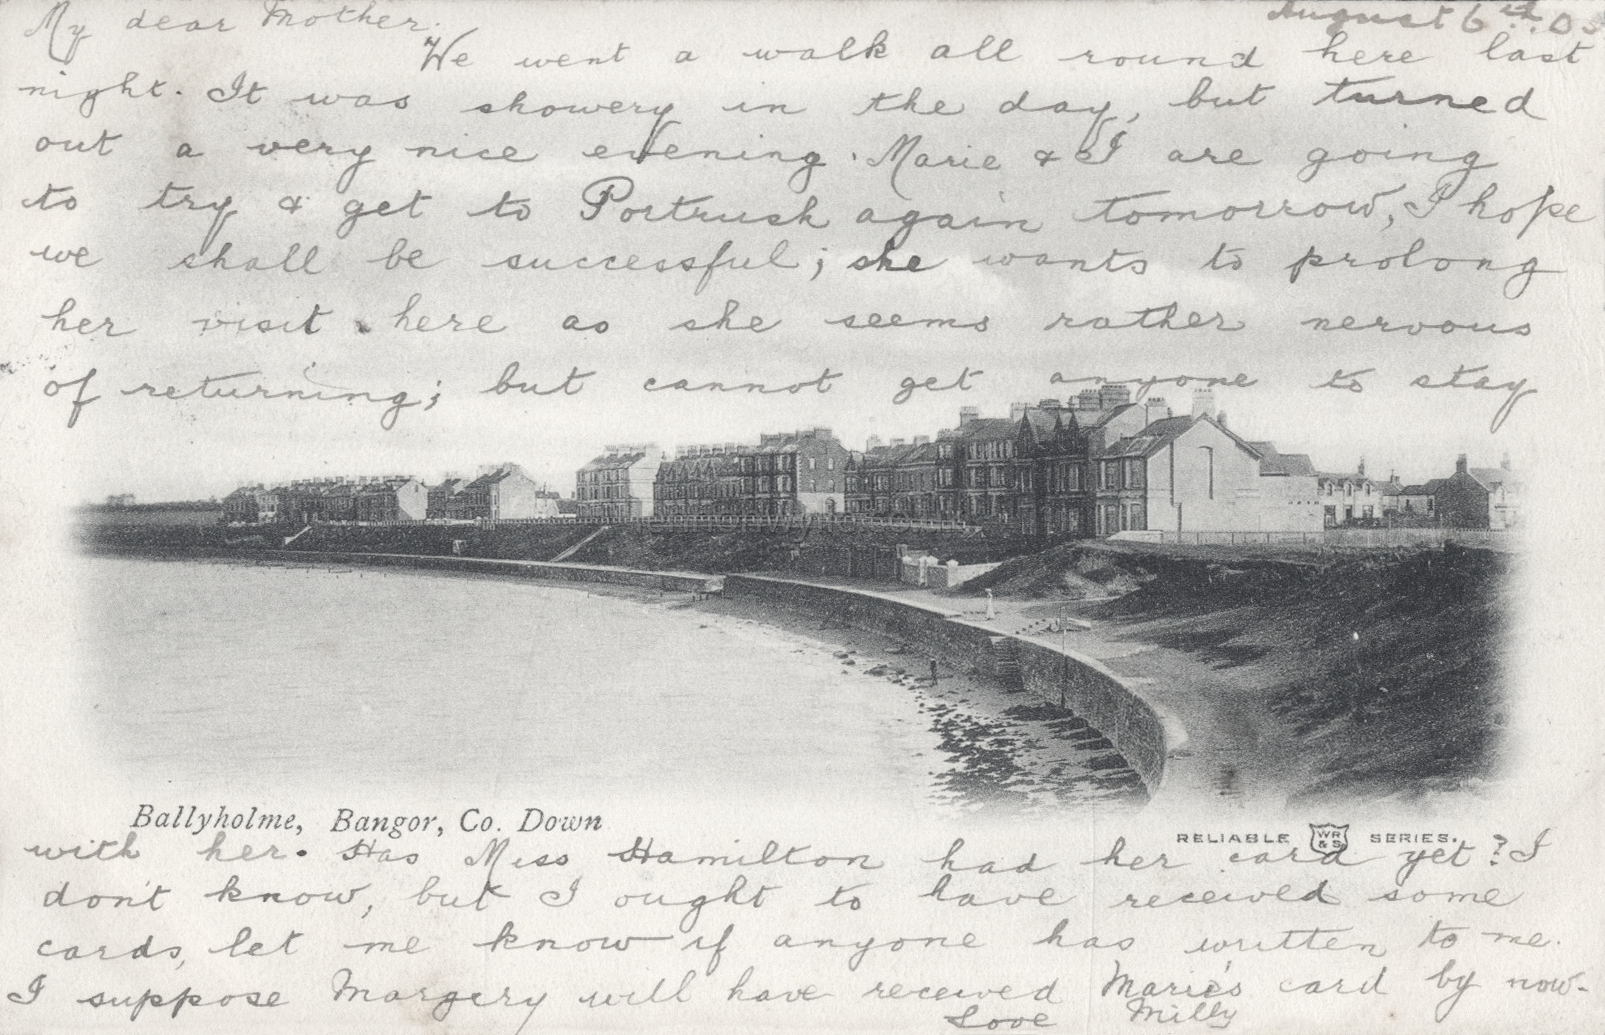 August 6th. 05
My dear Mother.
We went a walk all round here last
night. It was showery in the day, but turned
out a very nice evening. Marie & I are going
to try & get to Portrush again tomorrow, I hope
we shall be successful; she wants to prolong
her visit here as she seems rather nervous
of returning; but cannot get anyone to stay
Ballyholme, Bangor, Co. Down
RELIABLE WR&S SERIES.
with her. Has Miss Hamilton had her card yet? I
don't know, but I ought to have received some
cards, let me know if anyone has written to me.
I suppose Margery will have received Marie's card by now.
Love Milly